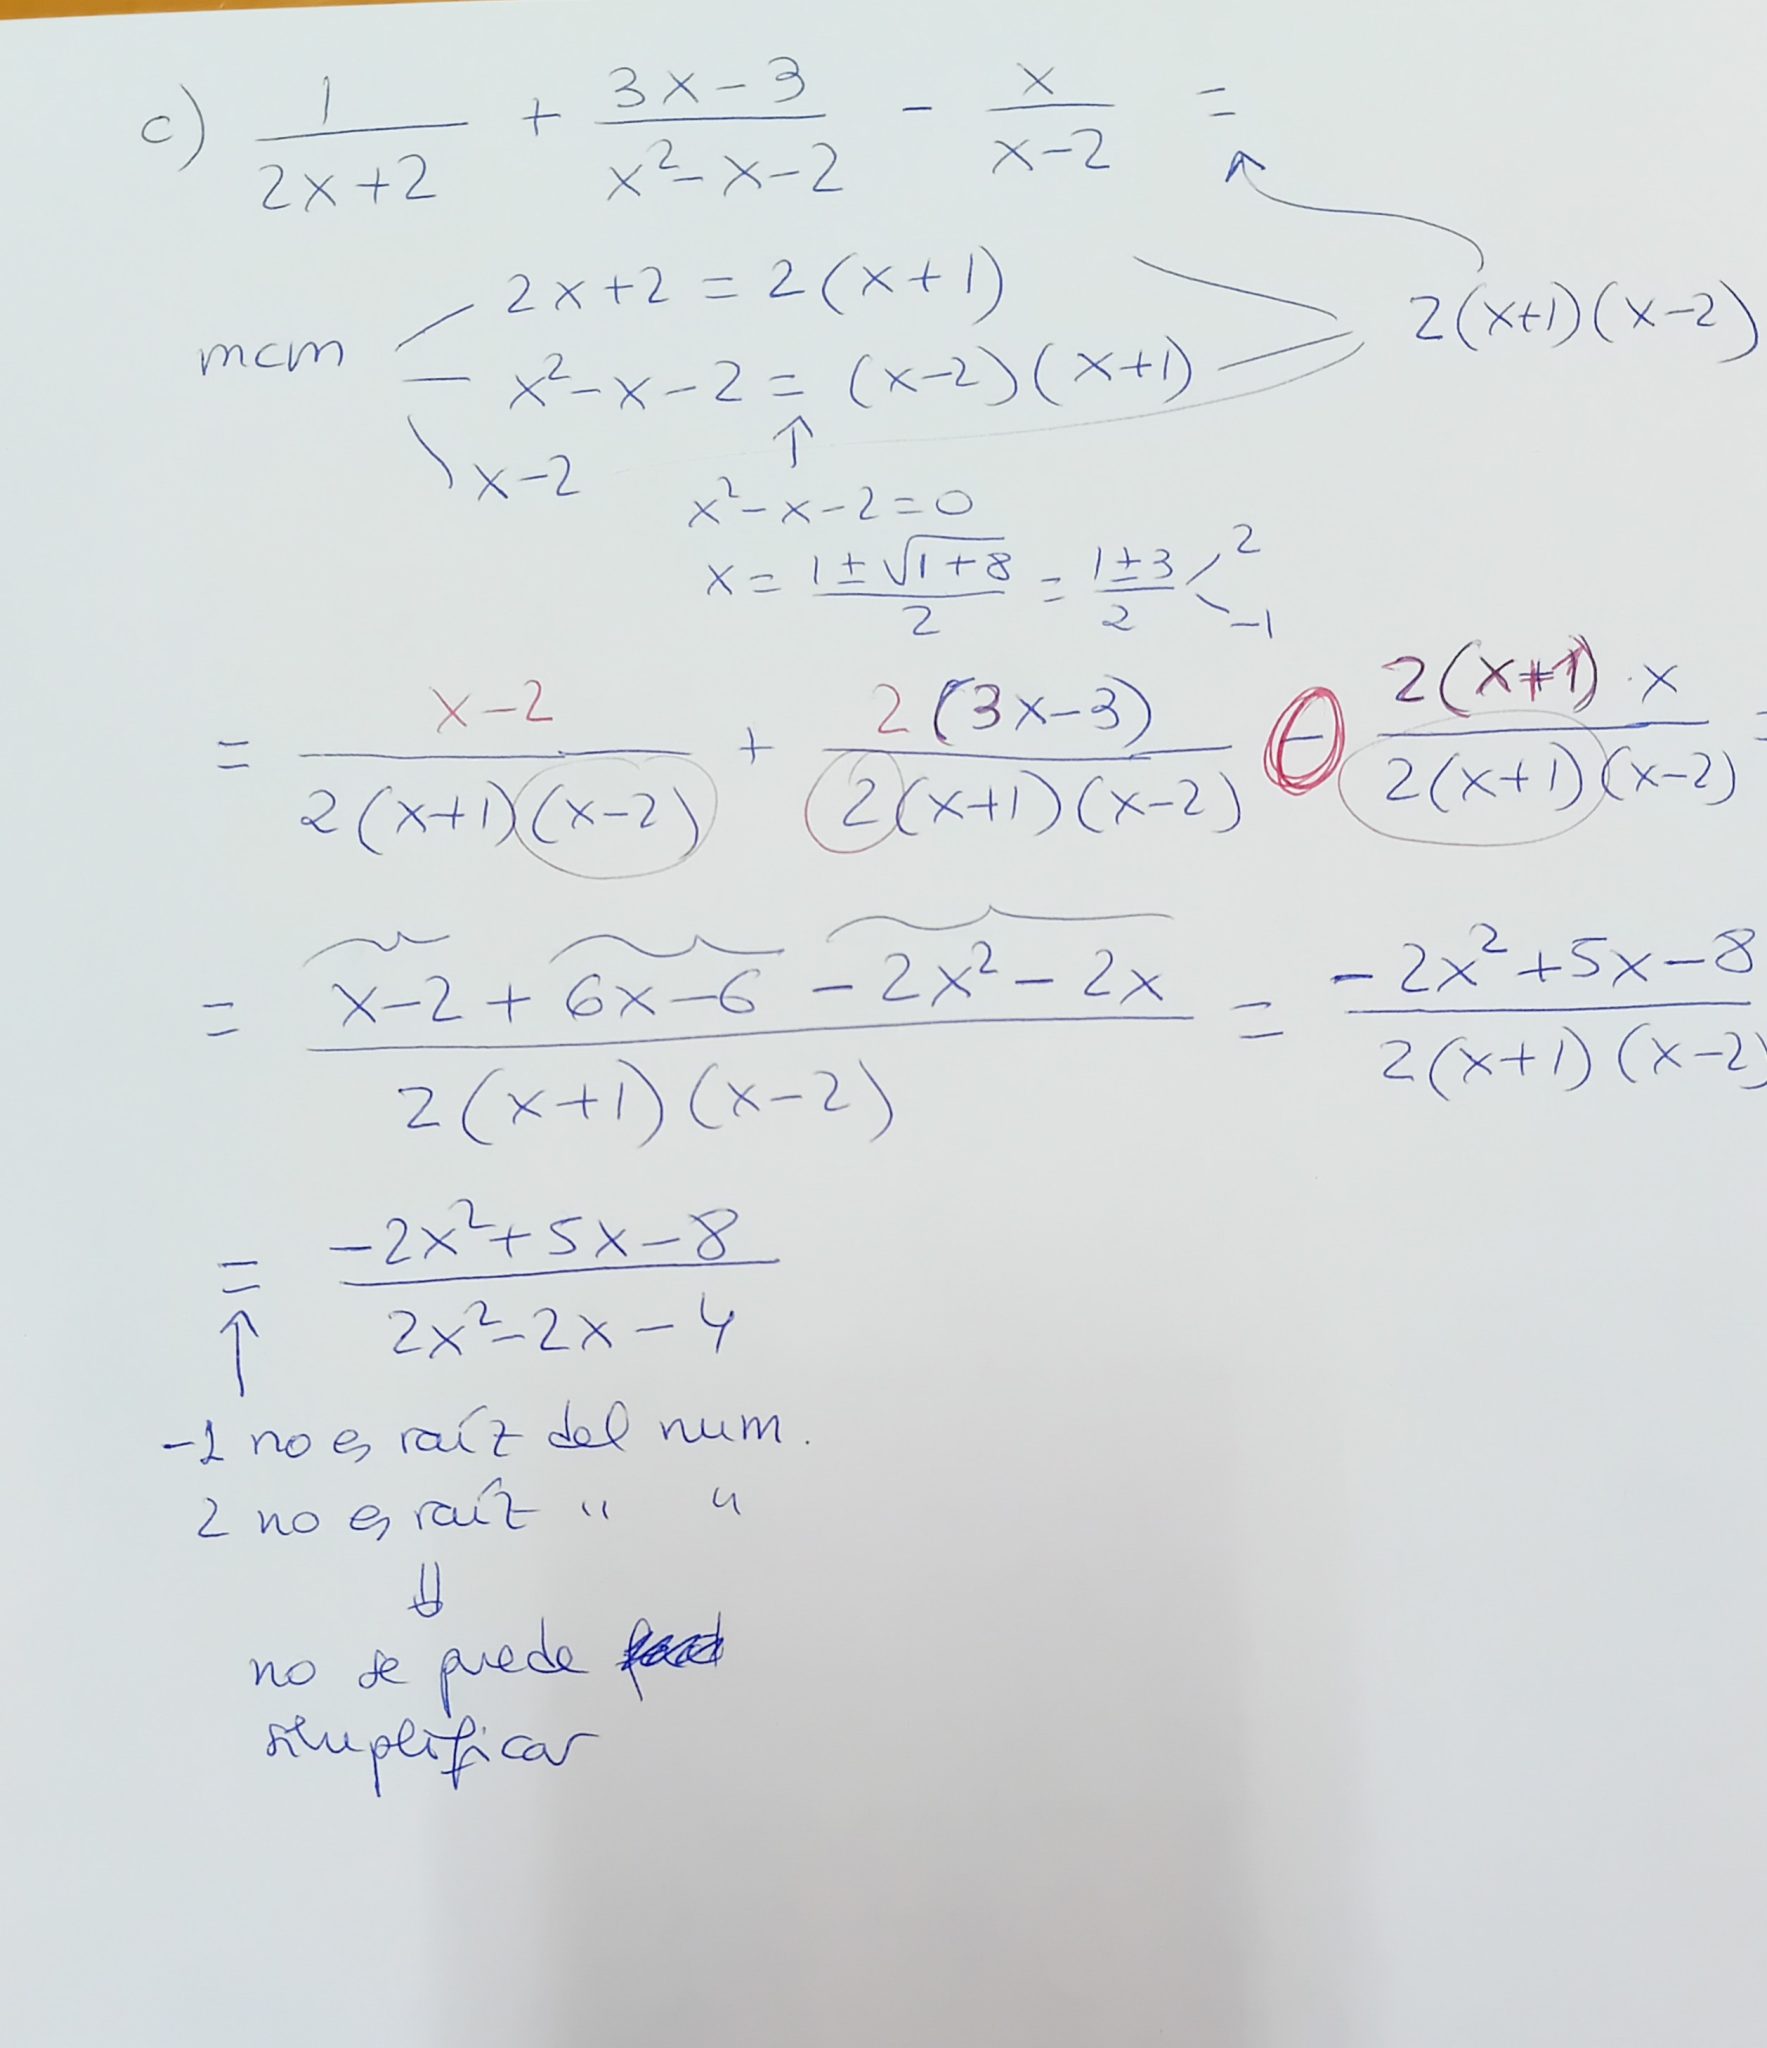 c) 1/(2x+2) + (3x-3)/(x²-x-2) - x/(x-2) =
2x+2 = 2(x+1)
mcm x²-x-2 = (x-2)(x+1) 2(x+1)(x-2)
x-2
x²-x-2=0
x = (1±√(1+8))/2 = (1±3)/2 2 -1
= (x-2)/(2(x+1)(x-2)) + 2(3x-3)/(2(x+1)(x-2)) - 2(x+1)·x/(2(x+1)(x-2)) =
= (x-2+6x-6-2x²-2x)/(2(x+1)(x-2)) = (-2x²+5x-8)/(2(x+1)(x-2)
= (-2x²+5x-8)/(2x²-2x-4)
-1 no es raíz del num.
2 no es raíz " "
⇓
no se puede
simplificar